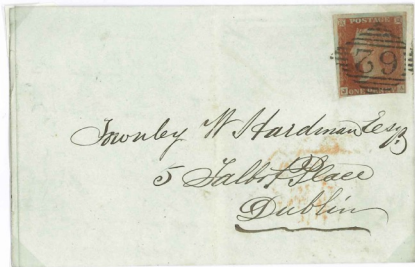 POSTAGE
62
ONE PENNY
Townley W Hardman Esqr
5 Talbot Place
Dublin